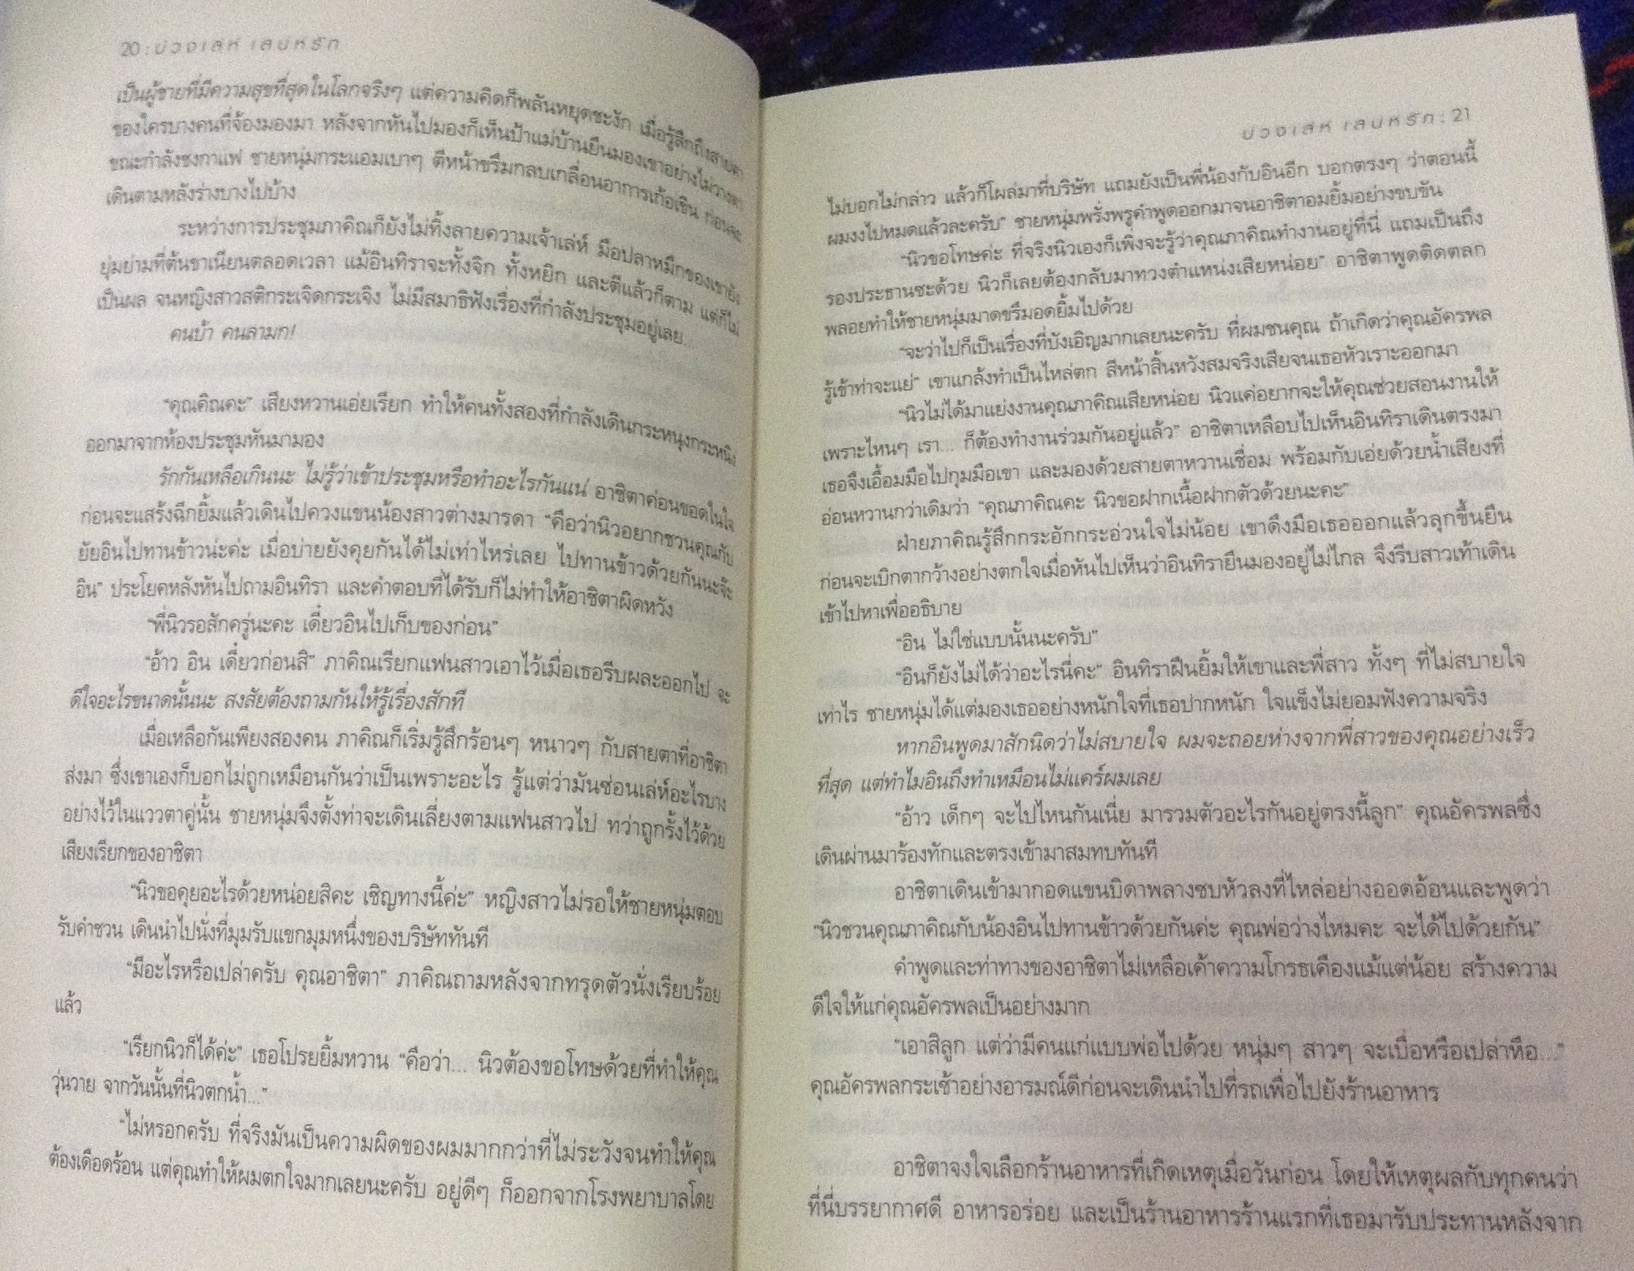 20 : บ่วงเล่ห์ เสน่หรัก
เป็นผู้ชายที่มีความสุขที่สุดในโลกจริงๆ แต่ความคิดก็พลันหยุดชะงัก เมื่อรู้สึกถึงสายตา
ของใครบางคนที่จ้องมองมา หลังจากหันไปมองก็เห็นป้าแม่บ้านยืนมองเขาอย่างไม่วางตา
ขณะกำลังชงกาแฟ ชายหนุ่มกระแอมเบาๆ ตีหน้าขรึมกลบเกลื่อนอาการเก้อเขิน ก่อนจะ
เดินตามหลังร่างบางไปบ้าง
ระหว่างการประชุมภาคิณก็ยังไม่ทิ้งลายความเจ้าเล่ห์ มือปลาหมึกของเขายัง
ยุ่มย่ามที่ต้นขาเนียนตลอดเวลา แม้อินทิราจะทั้งจิก ทั้งหยิก และตีแล้วก็ตาม แต่ก็ไม่
เป็นผล จนหญิงสาวสติกระเจิดกระเจิง ไม่มีสมาธิฟังเรื่องที่กำลังประชุมอยู่เลย...
คนบ้า คนลามก!
“คุณคิณคะ” เสียงหวานเอ่ยเรียก ทำให้คนทั้งสองที่กำลังเดินกระหนุงกระหนิง
ออกมาจากห้องประชุมหันมามอง
รักกันเหลือเกินนะ ไม่รู้ว่าเข้าประชุมหรือทำอะไรกันแน่ อาชิตาค่อนขอดในใจ
ก่อนจะแสร้งฉีกยิ้มแล้วเดินไปควงแขนน้องสาวต่างมารดา “คือว่านิวอยากชวนคุณกับ
ยัยอินไปทานข้าวน่ะค่ะ เมื่อบ่ายยังคุยกันได้ไม่เท่าไหร่เลย ไปทานข้าวด้วยกันนะจ๊ะ
อิน” ประโยคหลังหันไปถามอินทิรา และคำตอบที่ได้รับก็ไม่ทำให้อาชิตาผิดหวัง
“พี่นิวรอสักครู่นะคะ เดี๋ยวอินไปเก็บของก่อน”
“อ้าว อิน เดี๋ยวก่อนสิ” ภาคิณเรียกแฟนสาวเอาไว้เมื่อเธอรีบผละออกไป จะ
ดีใจอะไรขนาดนั้นนะ สงสัยต้องถามกันให้รู้เรื่องสักที
เมื่อเหลือกันเพียงสองคน ภาคิณก็เริ่มรู้สึกร้อนๆ หนาวๆ กับสายตาที่อาชิตา
ส่งมา ซึ่งเขาเองก็บอกไม่ถูกเหมือนกันว่าเป็นเพราะอะไร รู้แต่ว่ามันซ่อนเล่ห์อะไรบาง
อย่างไว้ในแววตาคู่นั้น ชายหนุ่มจึงตั้งท่าจะเดินเลี่ยงตามแฟนสาวไป ทว่าถูกรั้งไว้ด้วย
เสียงเรียกของอาชิตา
“นิวขอคุยอะไรด้วยหน่อยสิคะ เชิญทางนี้ค่ะ” หญิงสาวไม่รอให้ชายหนุ่มตอบ
รับคำชวน เดินนำไปนั่งที่มุมรับแขกมุมหนึ่งของบริษัททันที
“มีอะไรหรือเปล่าครับ คุณอาชิตา” ภาคิณถามหลังจากทรุดตัวนั่งเรียบร้อย
แล้ว
“เรียกนิวก็ได้ค่ะ” เธอโปรยยิ้มหวาน “คือว่า... นิวต้องขอโทษด้วยที่ทำให้คุณ
วุ่นวาย จากวันนั้นที่นิวตกน้ำ...”
“ไม่หรอกครับ ที่จริงมันเป็นความผิดของผมมากกว่าที่ไม่ระวังจนทำให้คุณ
ต้องเดือดร้อน แต่คุณทำให้ผมตกใจมากเลยนะครับ อยู่ดีๆ ก็ออกจากโรงพยาบาลโดย
บ่วงเล่ห์ เสน่หรัก : 21
ไม่บอกไม่กล่าว แล้วก็โผล่มาที่บริษัท แถมยังเป็นพี่น้องกับอินอีก บอกตรงๆ ว่าตอนนี้
ผมงงไปหมดแล้วละครับ” ชายหนุ่มพรั่งพรูคำพูดออกมาจนอาชิตาอมยิ้มอย่างขบขัน
“นิวขอโทษค่ะ ที่จริงนิวเองก็เพิ่งจะรู้ว่าคุณภาคิณทำงานอยู่ที่นี่ แถมเป็นถึง
รองประธานซะด้วย นิวก็เลยต้องกลับมาทวงตำแหน่งเสียหน่อย” อาชิตาพูดติดตลก
พลอยทำให้ชายหนุ่มมาดขรึมอดยิ้มไปด้วย
“จะว่าไปก็เป็นเรื่องที่บังเอิญมากเลยนะครับ ที่ผมชนคุณ ถ้าเกิดว่าคุณอัครพล
รู้เข้าท่าจะแย่” เขาแกล้งทำเป็นไหล่ตก สีหน้าสิ้นหวังสมจริงเสียจนเธอหัวเราะออกมา
“นิวไม่ได้มาแย่งงานคุณภาคิณเสียหน่อย นิวแค่อยากจะให้คุณช่วยสอนงานให้
เพราะไหนๆ เรา... ก็ต้องทำงานร่วมกันอยู่แล้ว” อาชิตาเหลือบไปเห็นอินทิราเดินตรงมา
เธอจึงเอื้อมมือไปกุมมือเขา และมองด้วยสายตาหวานเชื่อม พร้อมกับเอ่ยด้วยน้ำเสียงที่
อ่อนหวานกว่าเดิมว่า “คุณภาคิณคะ นิวขอฝากเนื้อฝากตัวด้วยนะคะ”
ฝ่ายภาคิณรู้สึกกระอักกระอ่วนใจไม่น้อย เขาดึงมือเธอออกแล้วลุกขึ้นยืน
ก่อนจะเบิกตากว้างอย่างตกใจเมื่อหันไปเห็นว่าอินทิรายืนมองอยู่ไม่ไกล จึงรีบสาวเท้าเดิน
เข้าไปหาเพื่ออธิบาย
“อิน ไม่ใช่แบบนั้นนะครับ”
“อินก็ยังไม่ได้ว่าอะไรนี่คะ” อินทิราฝืนยิ้มให้เขาและพี่สาว ทั้งๆ ที่ไม่สบายใจ
เท่าไร ชายหนุ่มได้แต่มองเธออย่างหนักใจที่เธอปากหนัก ใจแข็งไม่ยอมฟังความจริง
หากอินพูดมาสักนิดว่าไม่สบายใจ ผมจะถอยห่างจากพี่สาวของคุณอย่างเร็ว
ที่สุด แต่ทำไมอินถึงทำเหมือนไม่แคร์ผมเลย
“อ้าว เด็กๆ จะไปไหนกันเนี่ย มารวมตัวอะไรกันอยู่ตรงนี้ลูก” คุณอัครพลซึ่ง
เดินผ่านมาร้องทักและตรงเข้ามาสมทบทันที
อาชิตาเดินเข้ามากอดแขนบิดาพลางซบหัวลงที่ไหล่อย่างออดอ้อนและพูดว่า
“นิวชวนคุณภาคิณกับน้องอินไปทานข้าวด้วยกันค่ะ คุณพ่อว่างไหมคะ จะได้ไปด้วยกัน”
คำพูดและท่าทางของอาชิตาไม่เหลือเค้าความโกรธเคืองแม้แต่น้อย สร้างความ
ดีใจให้แก่คุณอัครพลเป็นอย่างมาก
“เอาสิลูก แต่ว่ามีคนแก่แบบพ่อไปด้วย หนุ่มๆ สาวๆ จะเบื่อหรือเปล่าหือ...”
คุณอัครพลกระเซ้าอย่างอารมณ์ดีก่อนจะเดินนำไปที่รถเพื่อไปยังร้านอาหาร
อาชิตาจงใจเลือกร้านอาหารที่เกิดเหตุเมื่อวันก่อน โดยให้เหตุผลกับทุกคนว่า
ที่นี่บรรยากาศดี อาหารอร่อย และเป็นร้านอาหารร้านแรกที่เธอมารับประทานหลังจาก